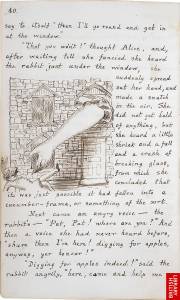 40.
say to itself "then I'll go round and get in
at the window."
"That you won't!" thought Alice, and,
after waiting till she fancied she heard
the rabbit just under the window, she
suddenly spread
out her hand, and
made a snatch
in the air. She
did not get hold
of anything, but
she heard a little
shriek and a fall
and a crash of
breaking glass,
from which she
concluded that
it was just possible it had fallen into a
cucumber-frame, or something of the sort.
Next came an angry voice — the
rabbit's — "Pat, Pat! where are you?" And
then a voice she had never heard before,
"shure then I'm here! digging for apples,
anyway, yer honour!"
"Digging for apples indeed!" said the
rabbit angrily, "here, come and help me
BRITISH
LIBRARY